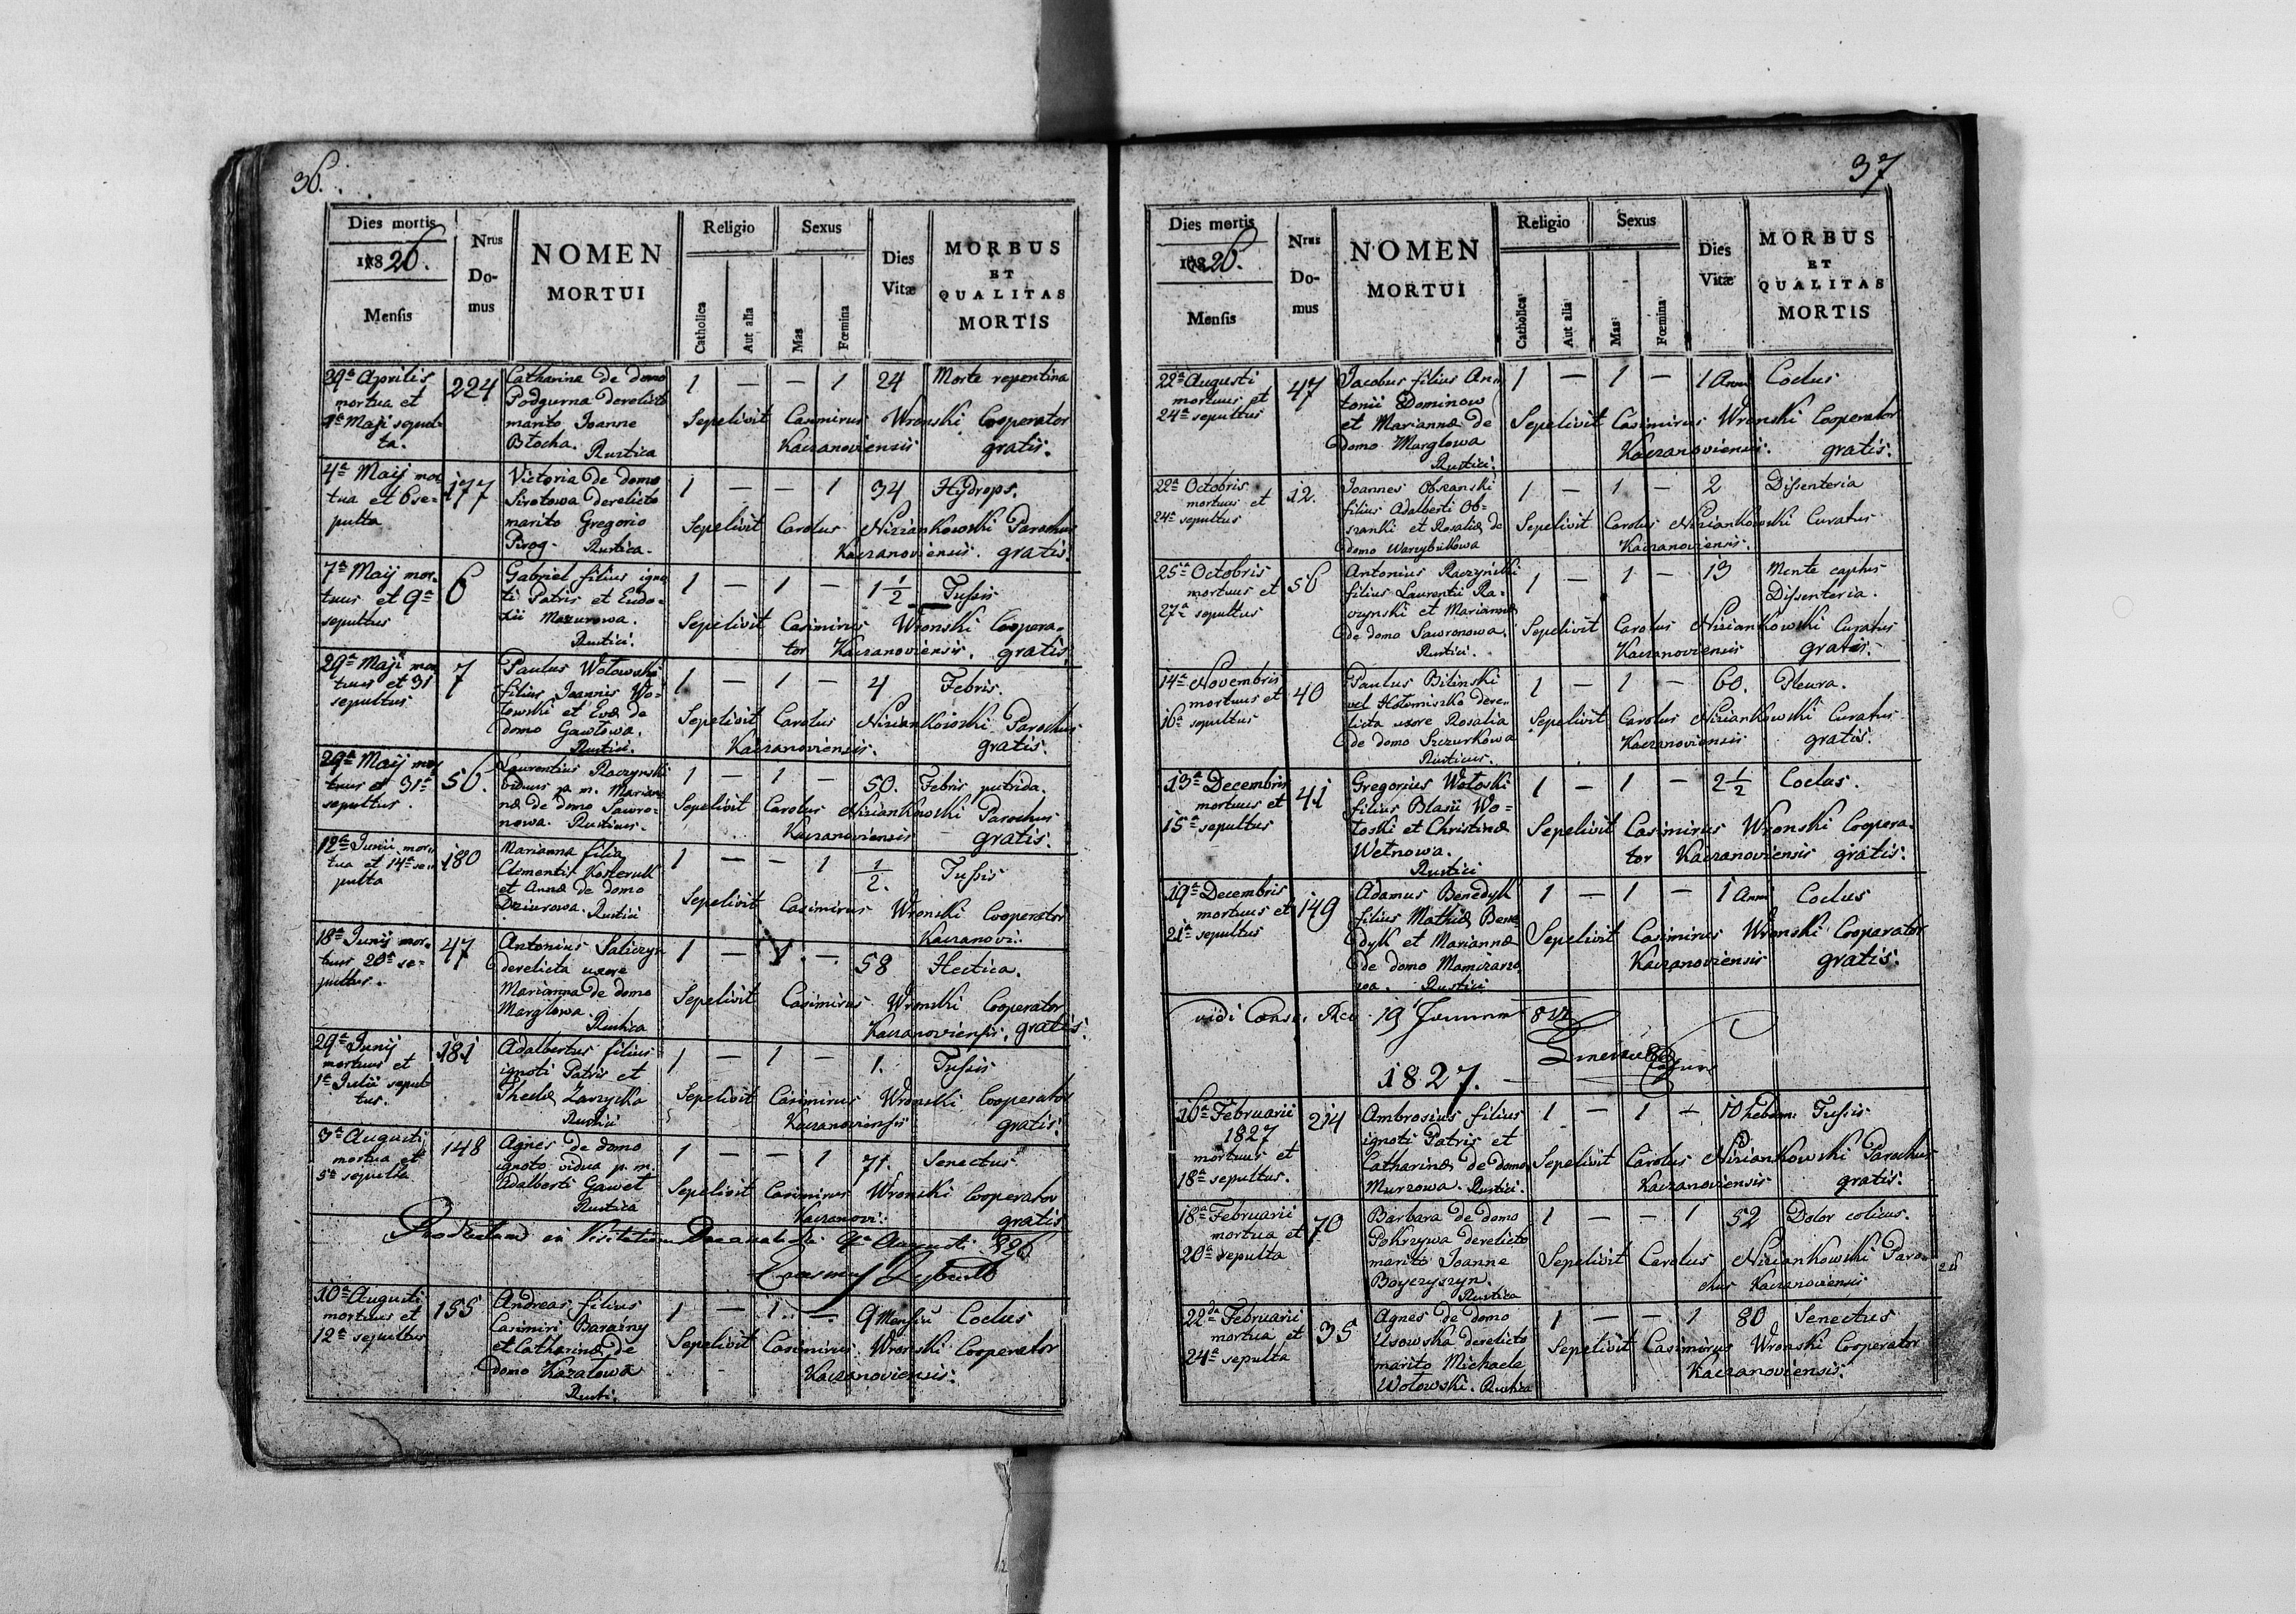 36.
Dies mortis
1826.
Mensis
Nrus
Do-
mus
NOMEN
MORTUI
Religio
Catholica
Aut alia
Sexus
Mas
Fœmina
Dies
Vitæ
MORBUS
ET
QUALITAS
MORTIS
29a Aprilis
mortua et
1a Maji sepul-
ta.
224
Catharina de domo
Podgurna derelicto
marito Joanne
Błocha. Rustica
1 — — 1 24 Morte repentina
Sepelivit Casimirus Wronski Cooperator
Kaczanoviensis gratis.
4a Maij mor
tua et 6 se-
pulta
177
Victoria de domo
Sirotowa derelicto
marito Gregorio
Pirog. Rustica.
1 — — 1 34 Hydrops.
Sepelivit Carolus Niziankowski Parochus
Kaczanoviensis. gratis.
7a Maij mor-
tuus et 9a
sepultus
6
Gabriel filius igno
ti Patris et Eudo-
xii Mazurowa.
Rustici.
1 — 1 — 1 1/2 Tussis
Sepelivit Casimirus Wronski Coopera-
tor Kaczanoviensis. gratis.
29a Maji mor
tuus et 31
sepultus
7
Paulus Wołowski
filius Joannis Wo-
łowski et Evæ de
domo Gawłowa.
Rustici.
1 — 1 — 4 Febris.
Sepelivit Carolus Niziankowski Parochus
Kaczanoviensis. gratis.
29a Maij mor
tuus et 31a
sepultus.
56.
Laurentius Raczynski
viduus p. m. Marian
næ de domo Sawro-
nowa. Rusticus.
1 — 1 — 50. Febris putrida.
Sepelivit Carolus Niziankowski Parochus
Kaczanoviensis gratis.
12a Junii mor-
tua et 14a se-
pulta
180
Marianna filia
Clementis Koszeruk
et Annæ de domo
Dziurowa. Rustici
1 — — 1 1/2. Tussis
Sepelivit Casimirus Wronski Cooperator
Kaczanovi:
18a Junij mor-
tuus 20a se-
pultus.
47
Antonius Saliczyn
derelicta uxore
Marianna de domo
Marglowa.
Rustica
1 — 1. — 58 Hectica.
Sepelivit Casimirus Wronski Cooperator
Kaczanoviensis. gratis.
29a Junij
mortuus et
1a Julii sepul-
tus.
181
Adalbertus filius
ignoti Patris et
Theclæ Zarzycka
Rustici
1 — 1 — 1. Tussis
Sepelivit Casimirus Wronski Cooperator
Kaczanoviensis gratis.
3a Augusti
mortua et
5a sepulta
148
Agnes de domo
ignoto vidua p. m.
Adalberti Gawet
Rustica
1 — — 1 71. Senectus
Sepelivit Casimirus Wronski Cooperator
Kaczanovi: gratis
in Visitatione Decanali die 9a Augusti 826
10a Augusti
mortuus et
12a sepultus
155
Andreas filius
Casimiri Barainy
et Catharinæ de
domo Kazatowa
Rusti.
1 — 1 — 9 Mensiu Coclus
Sepelivit Casimirus Wronski Cooperator
Kaczanoviensis.
37
Dies mortis
1826.
Mensis
Nrus
Do-
mus
NOMEN
MORTUI
Religio
Catholica
Aut alia
Sexus
Mas
Fœmina
Dies
Vitæ
MORBUS
ET
QUALITAS
MORTIS
22a Augusti
mortuus et
24a sepultus
47
Jacobus filius An-
tonii Dominow
et Mariannæ de
domo Marglowa
Rustici.
1 — 1 — 1 Anni Coclus
Sepelivit Casimirus Wronski Cooperator
Kaczanoviensis. gratis.
22a Octobris
mortuus et
24a sepultus
12.
Joannes Obszanski
filius Adalberti Ob-
szanski et Rosaliæ de
domo Warzybukowa
1 — 1 — 2 Dissenteria
Sepelivit Carolus Niziankowski Curatus
Kaczanoviensis.
25a Octobris
mortuus et
27a sepultus
56
Antonius Raczyński
filius Laurentii Ra-
czynski et Mariannæ
de domo Sawronowa.
Rustici.
1 — 1 — 13 Mente captus
Dissenteria.
Sepelivit Carolus Niziankowski Curatus
Kaczanoviensis gratis.
14a Novembris
mortuus et
16a sepultus
40
Paulus Bilinski
vel Hołomiszko dere-
licta uxore Rosalia
de domo Szczurkowa
Rusticus.
1 — 1 — 60. Pleura.
Sepelivit Carolus Niziankowski Curatus
Kaczanoviensis gratis.
13a Decembris
mortuus et
15a sepultus
41
Gregorius Wołoski
filius Blasii Wo-
łoski et Christinæ
Wełnowa.
Rustici
1 — 1 — 2 1/2 Coclus.
Sepelivit Casimirus Wronski Coopera-
tor Kaczanoviensis gratis.
19a Decembris
mortuus et
21a sepultus
149
Adamus Benedyk
filius Mathiæ Bene
dyk et Mariannæ
de domo Mamczarzo
wa. Rustici
1 — 1 — 1 Anni Coclus
Sepelivit Casimirus Wronski Cooperator
Kaczanoviensis gratis.
vidi 19 827
1827.
16a Februarii
1827
mortuus et
18a sepultus.
214
Ambrosius filius
ignoti Patris et
Catharinæ de domo
Murzowa. Rustici.
1 — 1 — 10 hebdom: Tussis
Sepelivit Carolus Niziankowski Parochus
Kaczanoviensis gratis.
18a Februarii
mortua et
20a sepulta
70
Barbara de domo
Pokrzywa derelicto
marito Joanne
Boyczyszyn.
Rustica
1 — — 1 52 Dolor colicus.
Sepelivit Carolus Niziankowski Paro-
chus Kaczanoviensis
22da Februarii
mortua et
24a sepulta
35
Agnes de domo
Usowska derelicto
marito Michaele
Wołowski. Rustica
1 — — 1 80 Senectus
Sepelivit Casimirus Wronski Cooperator
Kaczanoviensis.